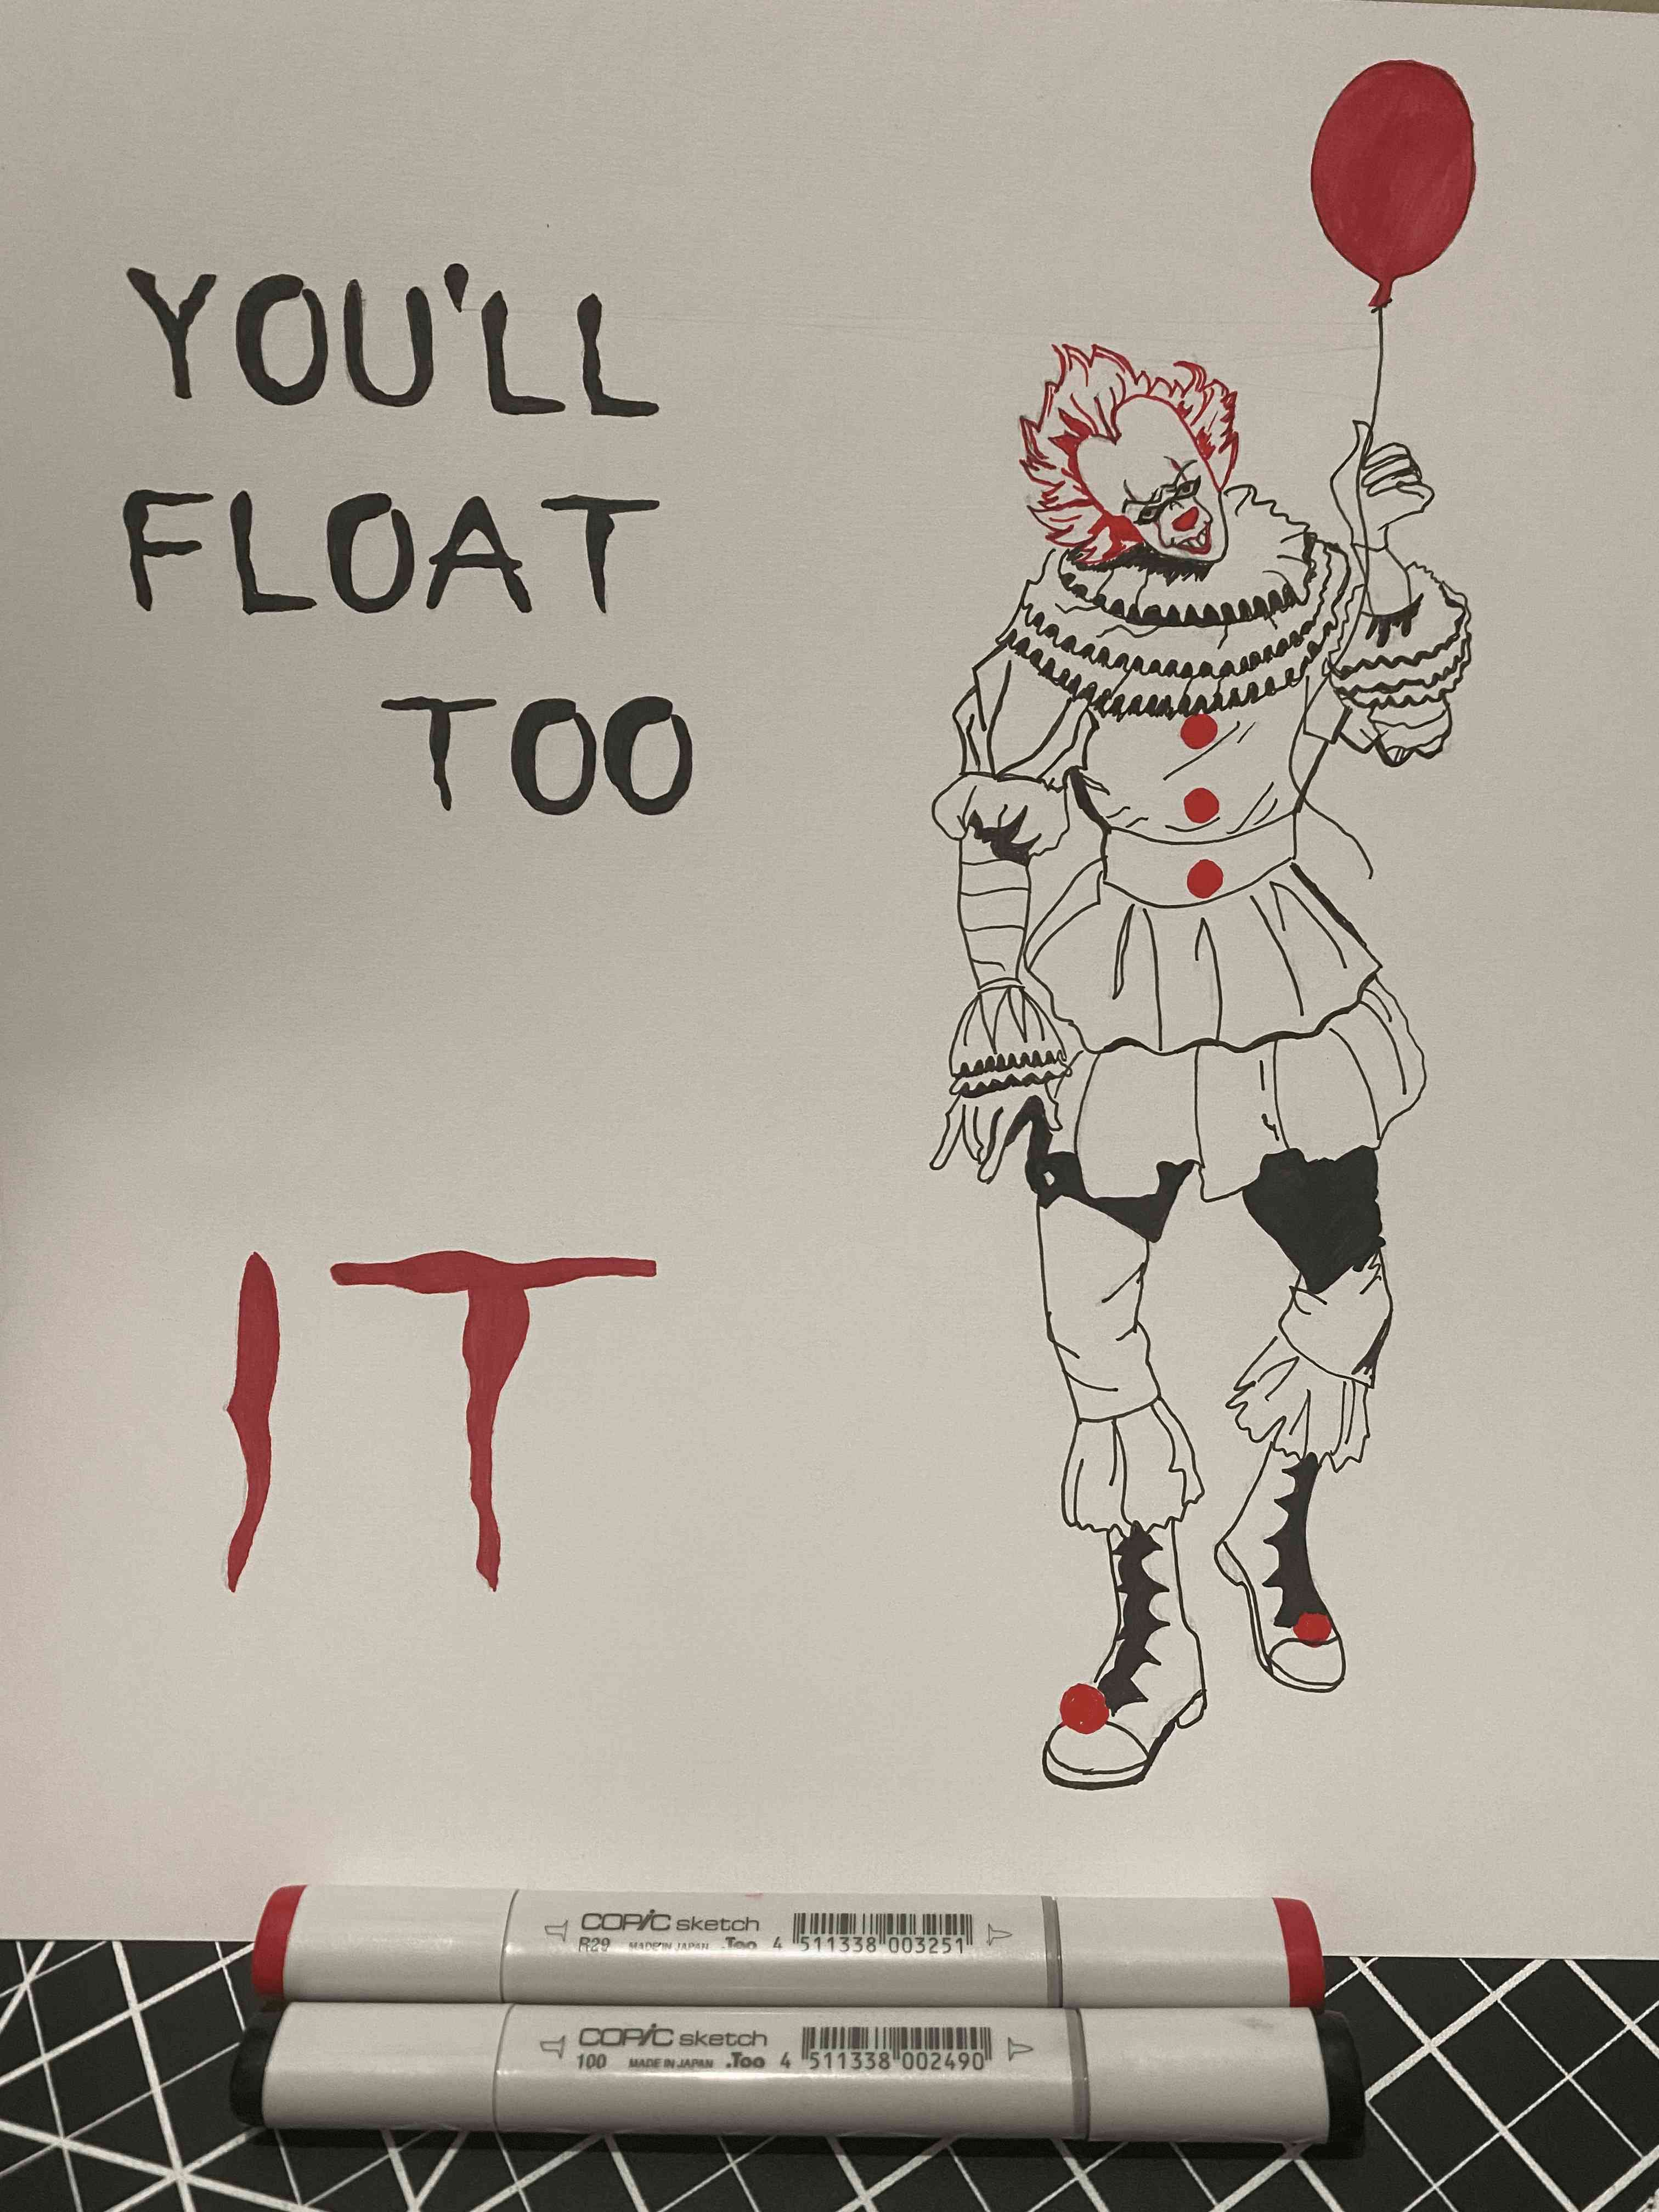 YOU'LL
FLOAT
TOO
IT
COPIC sketch
R29 MADE IN JAPAN .Too 4 511338 003251
COPIC sketch
100 MADE IN JAPAN .Too 4 511338 002490